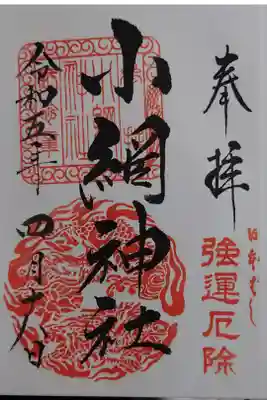 奉拝
日本ばし
強運厄除
小網神社
令和五年
四月十八日